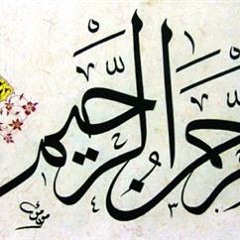 رحمن الرَّحيم